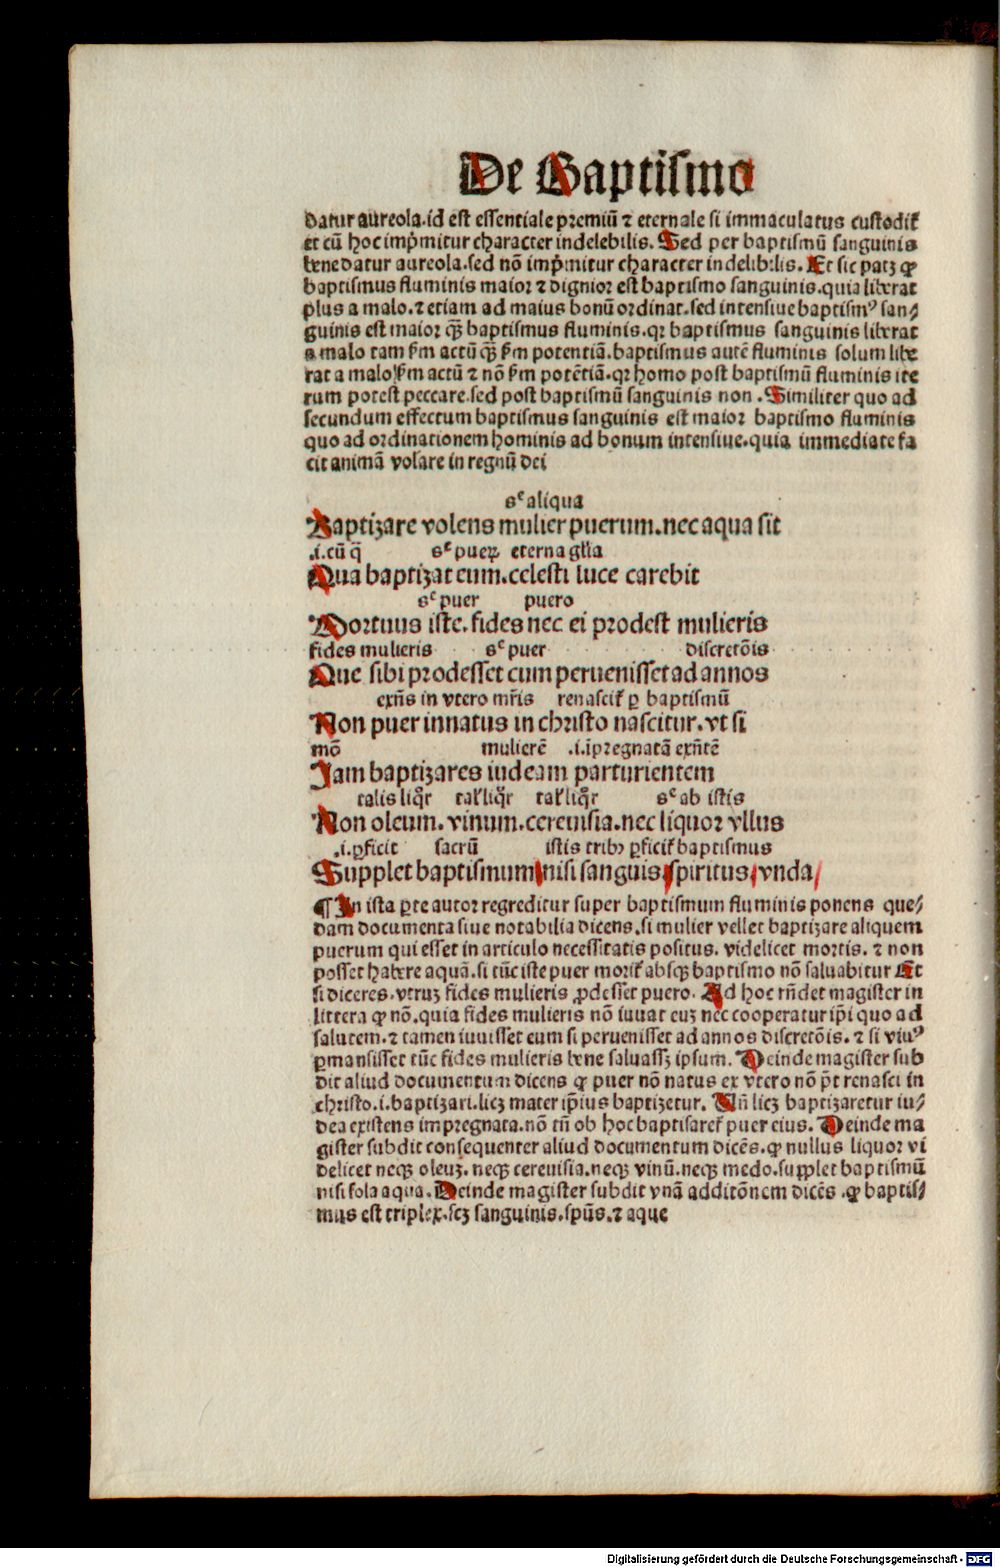 De Baptismo
datur aureola.id est essentiale premiū ⁊ eternale si immaculatus custodiť
et cū hoc imp̄mitur character indelebilis. Sed per baptismū sanguinis
bene datur aureola.sed nō imp̄mitur character indelibilis. Et sic patꝫ ꝙ
baptismus fluminis maior ⁊ dignior est baptismo sanguinis.quia liberat
plus a malo.⁊ etiam ad maius bonū ordinat.sed intensiue baptismꝰ san⸗
guinis est maior qȝ̄ baptismus fluminis.qꝛ baptismus sanguinis liberat
a malo tam ẜm actū qȝ̄ ẜm potentiā.baptismus autē fluminis solum libe
rat a malo ẜm actū ⁊ nō ẜm potētiā.qꝛ homo post baptismū fluminis ite
rum potest peccare.sed post baptismū sanguinis non .Similiter quo ad
secundum effectum baptismus sanguinis est maior baptismo fluminis
quo ad ordinationem hominis ad bonum intensiue.quia immediate fa
cit animā volare in regnū dei
sᶜ aliqua
Baptizare volens mulier puerum.nec aqua sit
.i.cū q̄ sᶜ pueꝝ eterna gl̄ia
Qua baptizat eum.celesti luce carebit
sᶜ puer puero
Mortuus iste.fides nec ei prodest mulieris
fides mulieris sᶜ puer discretōis
Que sibi prodesset cum peruenisset ad annos
exn̄s in vtero mr̄is renasciť ꝑ baptismū
Non puer innatus in christo nascitur.vt si
mō mulierē .i.īpregnatā exn̄tē
Jam baptizares iudeam parturientem
talis liq̄r taľ liq̄r taľ liq̄r sᶜ ab istis
Non oleum.vinum.cereuisia.nec liquor vllus
.i.ꝑficit sacrū istis tribꝰ ꝑficiť baptismus
Supplet baptismum nisi sanguis spiritus vnda
¶ In ista ꝑte autor regreditur super baptismum fluminis ponens que⸗
dam documenta siue notabilia dicens.si mulier vellet baptizare aliquem
puerum qui esset in articulo necessitatis positus. videlicet mortis. ⁊ non
posset habere aquā.si tūc iste puer moriť absqȝ baptismo nō saluabitur Et
si diceres.vtruꝫ fides mulieris ꝓdesset puero. Ad hoc rn̄det magister in
littera ꝙ nō.quia fides mulieris nō iuuat euꝫ nec cooperatur ip̄i quo ad
salutem.⁊ tamen iuuisset eum si peruenisset ad annos discretōis.⁊ si viuꝰ
ꝑmansisset tūc fides mulieris bene saluassꝫ ipsum. Deinde magister sub
dit aliud documentum dicens ꝙ puer nō natus ex vtero nō p̄t renasci in
christo.i.baptizari.licꝫ mater ip̄ius baptizetur. Un̄ licꝫ baptizaretur iu⸗
dea existens impregnata.nō tn̄ ob hoc baptisareť puer eius. Deinde ma
gister subdit consequenter aliud documentum dicēs.ꝙ nullus liquor vi
delicet neqȝ oleuꝫ.neqȝ cereuisia.neqȝ vinū.neqȝ medo.supplet baptismū
nisi sola aqua. Deinde magister subdit vnā additōnem dicēs .ꝙ baptis⸗
mus est triplex.scꝫ sanguinis.sp̄us.⁊ aque
Digitalisierung gefördert durch die Deutsche Forschungsgemeinschaft - DFG